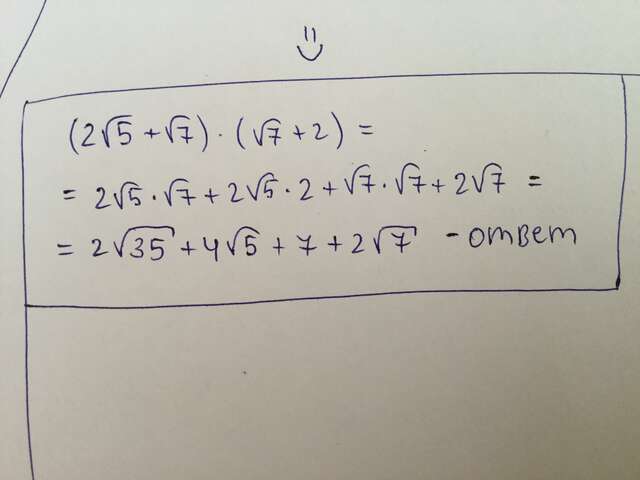 (2√5 + √7) · (√7 + 2) =
= 2√5 · √7 + 2√5 · 2 + √7 · √7 + 2√7 =
= 2√35 + 4√5 + 7 + 2√7 - ответ